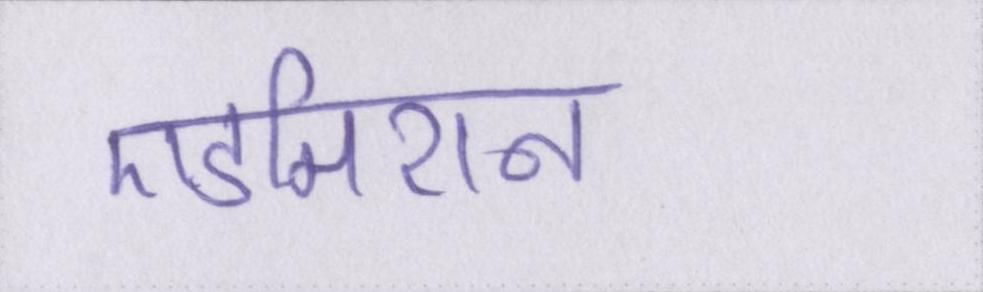 एडमिशन